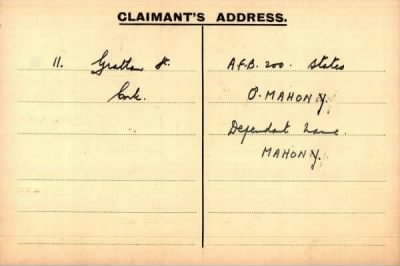 CLAIMANT'S ADDRESS.
11. Grattan St.
Cork.
A.F.B. 200. States
O. MAHONY.
Dependant name.
MAHONY.